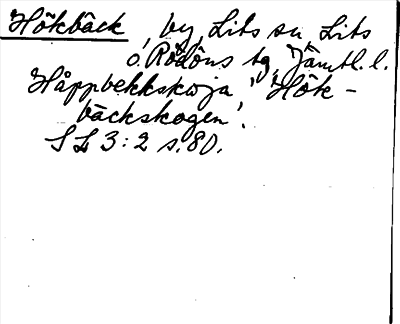 Hökbäck, by, Lits sn, Lits
o. Rödöns tg, Jämtl. l.
Håppbekkskoja 'Hök-
bäckskogen'.
S L 3:2 s. 80.